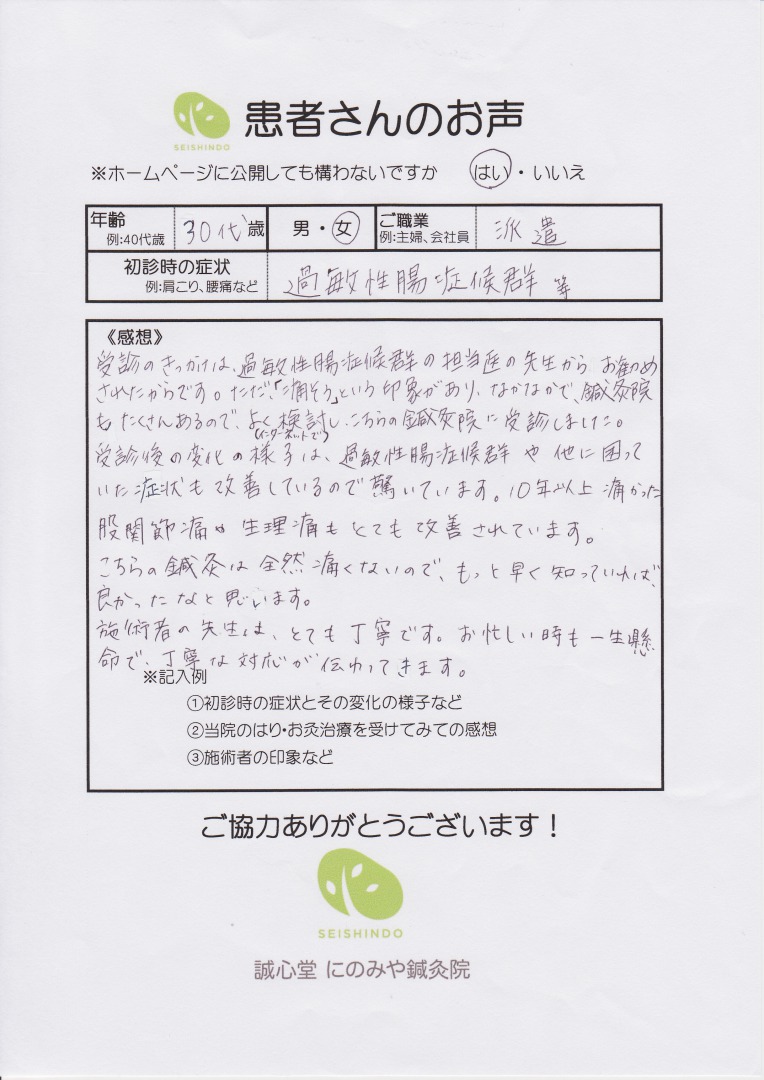 SEISHINDO
患者さんのお声
※ホームページに公開しても構わないですか はい・いいえ
年齢 例:40代歳 30代歳 男・女 ご職業 例:主婦、会社員 派遣
初診時の症状 例:肩こり、腰痛など 過敏性腸症候群 等
《感想》
受診のきっかけは、過敏性腸症候群の担当医の先生から お勧め
されたからです。ただ、「痛そう」という印象があり、なかなかで、鍼灸院
もたくさんあるので、よく検討し、こちらの鍼灸院に受診しました。
(インターネットで)
受診後の変化の様子は、過敏性腸症候群や他に困って
いた症状も改善しているので驚いています。10年以上痛かった
股関節痛や生理痛もとても改善されています。
こちらの鍼灸は全然痛くないので、もっと早く知っていれば、
良かったなと思います。
施術者の先生は、とても丁寧です。お忙しい時も一生懸
命で、丁寧な対応が伝わってきます。
※記入例
①初診時の症状とその変化の様子など
②当院のはり・お灸治療を受けてみての感想
③施術者の印象など
ご協力ありがとうございます!
SEISHINDO
誠心堂 にのみや鍼灸院